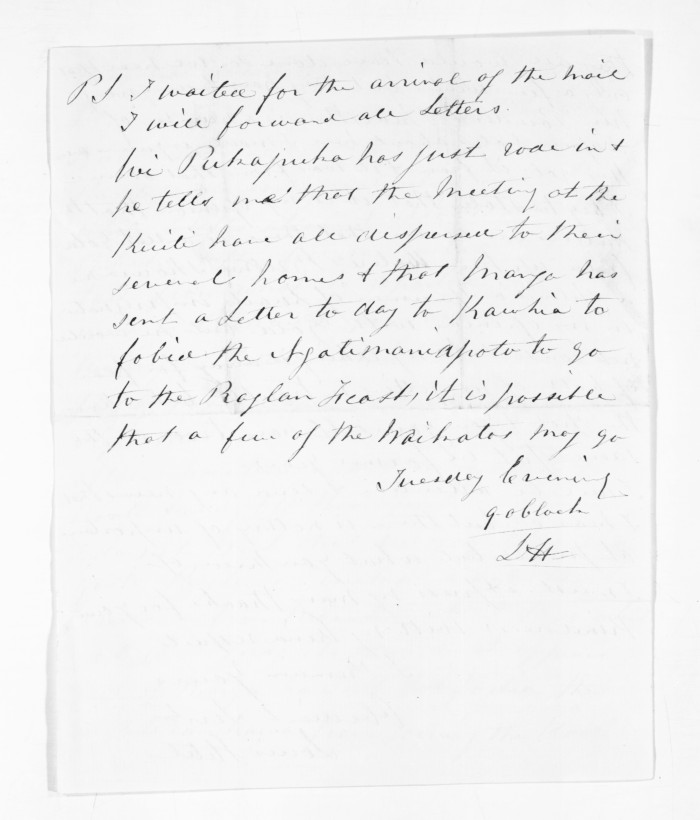 PS I waited for the arrival of the mail
I will forward all Letters.
Wi Pukapuka has just rode in &
he tells me that the Meeting at the
Kuiti have all dispersed to their
several homes & that Manga has
sent a Letter to day to Kawhia to
fobid the Ngatimaniapoto to go
to the Raglan Feast, it is possible
that a few of the Waikatos may go
Tuesday Evening
9 oblock
LH